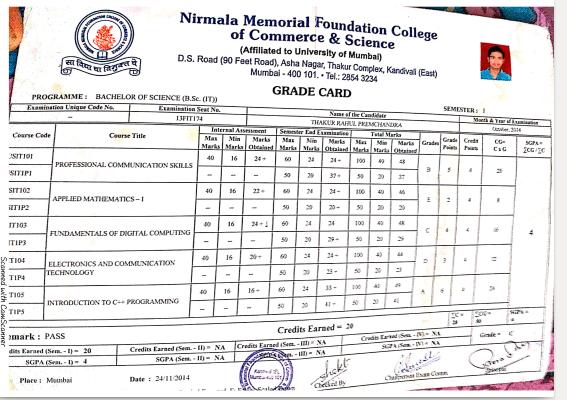 Nirmala Memorial Foundation College
of Commerce & Science
(Affiliated to University of Mumbai)
D.S. Road (90 Feet Road), Asha Nagar, Thakur Complex, Kandivali (East)
Mumbai - 400 101. • Tel.: 2854 3234
GRADE CARD
PROGRAMME : BACHELOR OF SCIENCE (B.Sc. (IT)) SEMESTER : I
Examination Unique Code No. Examination Seat No. Name of the Candidate Month & Year of Examination
-- 13FIT174 THAKUR RAHUL PREMCHANDRA October, 2014
Course Code Course Title Internal Assessment Semester End Examination Total Marks Grades Grade Points Credit Points CG= C x G SGPA = ΣCG / ΣC
Max Marks Min Marks Marks Obtained Max Marks Min Marks Marks Obtained Max Marks Min Marks Marks Obtained
SIT101 PROFESSIONAL COMMUNICATION SKILLS 40 16 24+ 60 24 24+ 100 40 48 B 5 4 20
SIT1P1 -- -- -- 50 20 37+ 50 20 37
SIT102 APPLIED MATHEMATICS – I 40 16 22+ 60 24 24+ 100 40 46 E 2 4 8
SIT1P2 -- -- -- 50 20 20+ 50 20 20
IT103 FUNDAMENTALS OF DIGITAL COMPUTING 40 16 24+ 60 24 24 100 40 48 C 4 4 16
IT1P3 -- -- -- 50 20 29+ 50 20 29
T104 ELECTRONICS AND COMMUNICATION TECHNOLOGY 40 16 20+ 60 24 24+ 100 40 44 D 3 4
T1P4 -- -- -- 50 20 23+ 50 20 23
T105 INTRODUCTION TO C++ PROGRAMMING 40 16 16+ 60 24 33+ 100 40 49 A 6 4 24
T1P5 -- -- -- 50 20 41+ 50 20 41
4
Credits Earned = 20
mark : PASS Grade = C
edits Earned (Sem. - I) = 20 Credits Earned (Sem. - II) = NA Credits Earned (Sem. - III) = NA Credits Earned (Sem. - IV) = NA
SGPA (Sem. - I) = 4 SGPA (Sem. - II) = NA SGPA (Sem. - III) = NA SGPA (Sem. - IV) = NA
Place : Mumbai Date : 24/11/2014 Checked By Chairperson Exam Comm. Principal
Scanned with CamScanner